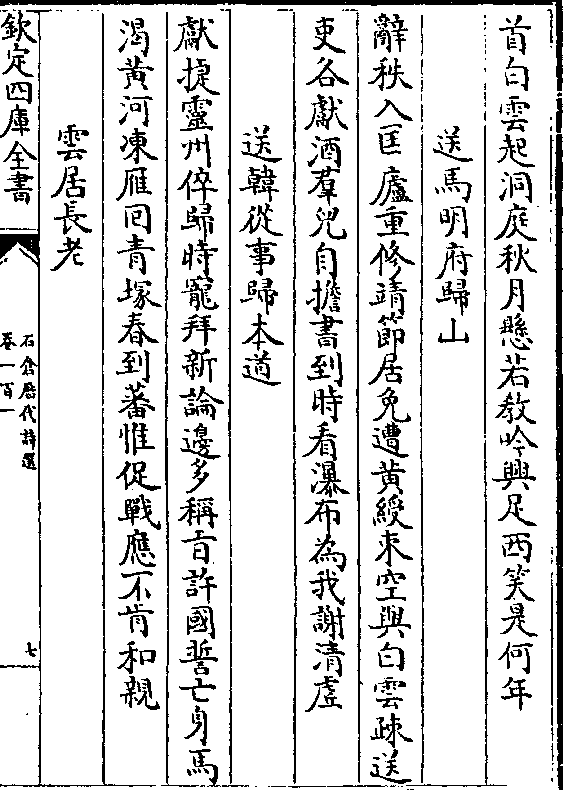 首白雲起洞庭秋月懸若教吟興足西笑是何年
送馬明府歸山
辭秩入匡廬重修靖節居免遭黄綬束空與白雲疎送
吏各獻酒羣兒自擔書到時看瀑布為我謝清虛
送韓從事歸本道
獻捷靈州倅歸時寵拜新論邊多稱㫖許國誓亡身馬
渴黄河凍雁囘青塚春到蕃惟促戰應不肯和親
雲居長老
欽定四庫全書
石倉歴代詩選
卷一百一
七